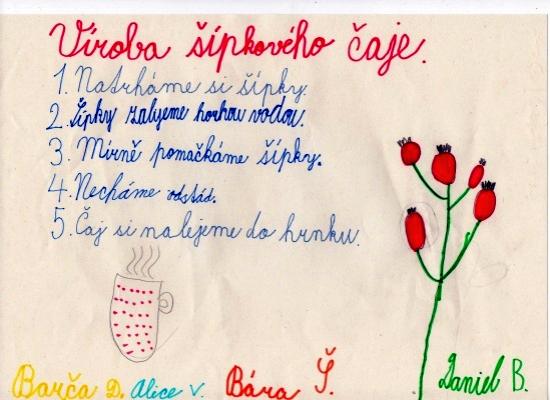 Víroba šípkového čaje.
1. Natrháme si šípky.
2. Šípky zalyjeme horkou vodou.
3. Mírně pomačkáme šípky.
4. Necháme odstád.
5. Čaj si nalejeme do hrnku.
Barča D. Alice V. Bára Š. Daniel B.